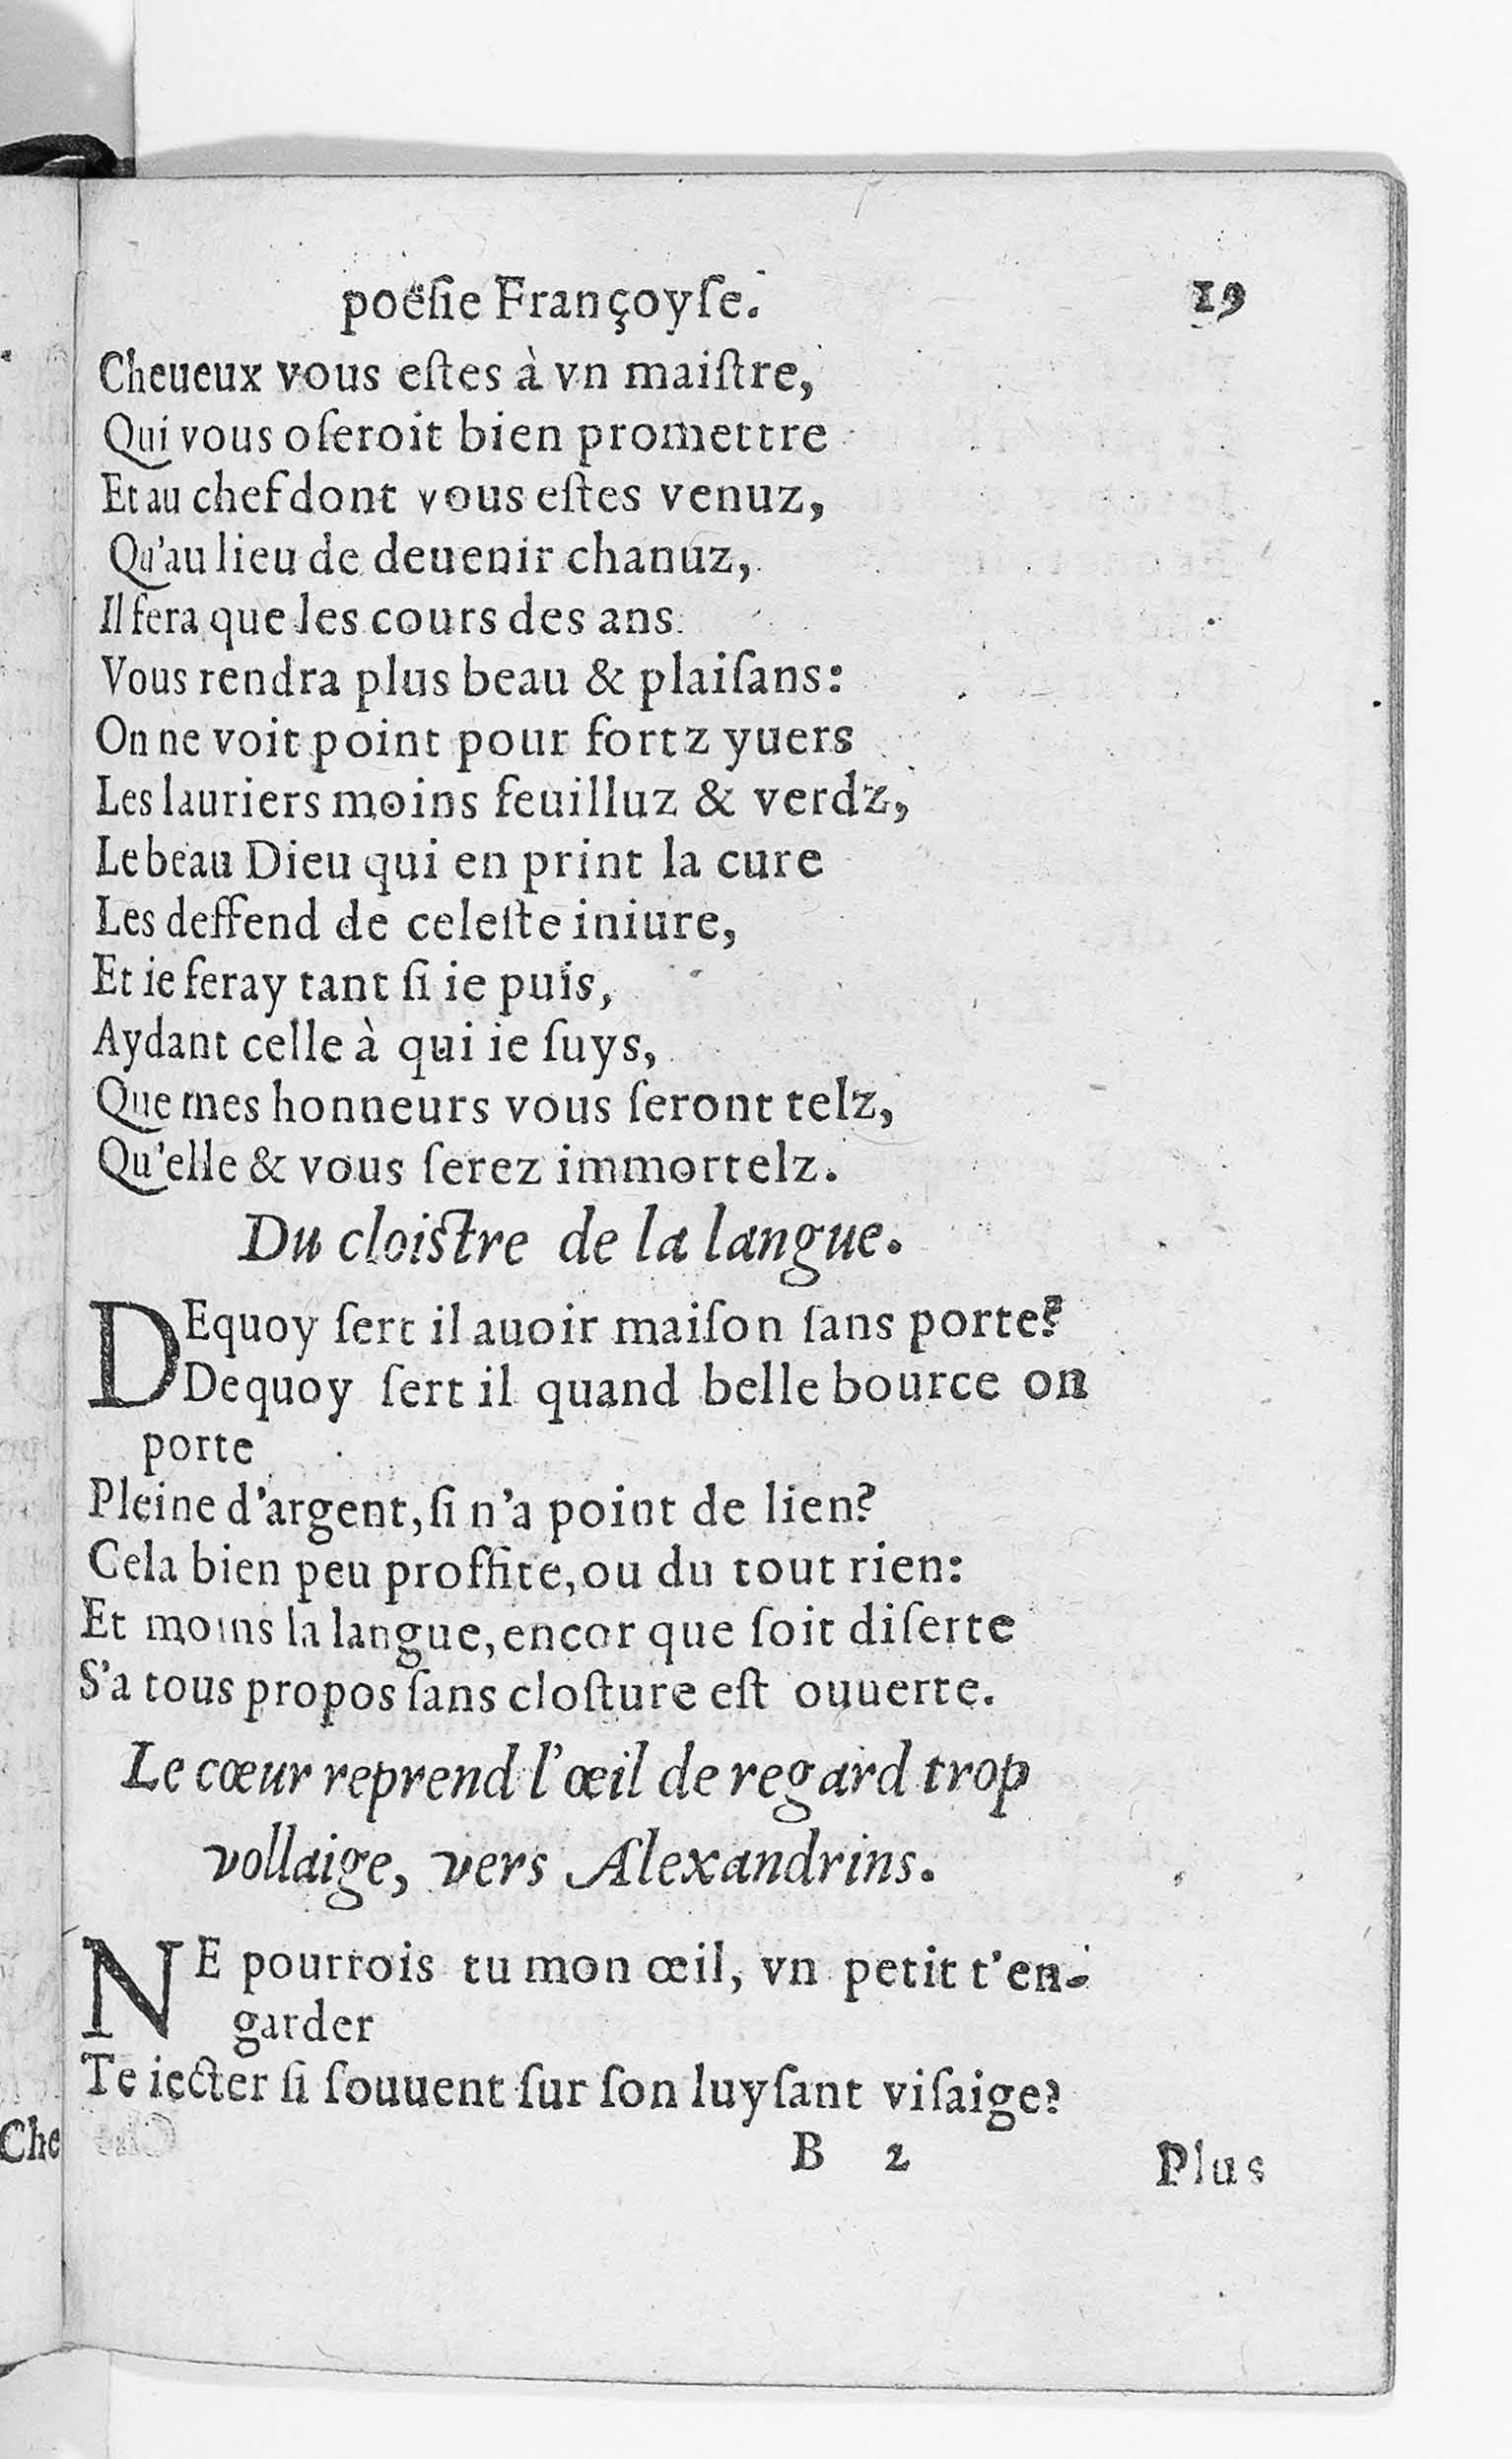 poësie Françoyſe. 19
Cheueux vous eſtes à vn maiſtre,
Qui vous oſeroit bien promettre
Et au chef dont vous eſtes venuz,
Qu'au lieu de deuenir chanuz,
Il fera que les cours des ans
Vous rendra plus beau & plaiſans:
On ne voit point pour fortz yuers
Les lauriers moins feuilluz & verdz,
Le beau Dieu qui en print la cure
Les deffend de celeſte iniure,
Et ie feray tant ſi ie puis,
Aydant celle à qui ie ſuys,
Que mes honneurs vous ſeront telz,
Qu'elle & vous ſerez immortelz.
Du cloiſtre de la langue.
DEquoy ſert il auoir maiſon ſans porte?
Dequoy ſert il quand belle bource on
porte
Pleine d'argent, ſi n'a point de lien?
Cela bien peu proffite, ou du tout rien:
Et moins la langue, encor que ſoit diſerte
S'a tous propos ſans cloſture eſt ouuerte.
Le cœur reprend l'œil de regard trop
vollaige, vers Alexandrins.
NE pourrois tu mon œil, vn petit t'en-
garder
Te iecter ſi ſouuent ſur ſon luyſant viſaige?
Che
B 2 Plus